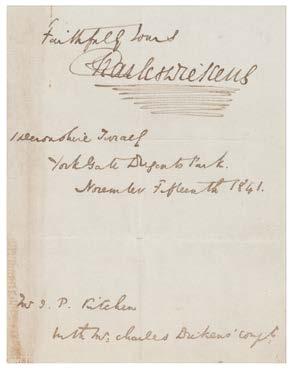 Faithfully Yours
Charles Dickens
1 Devonshire Terrace
York Gate Regents Park.
November Fifteenth 1841.
Mr J. P. Kitchen
with Mr Charles Dickens' compts